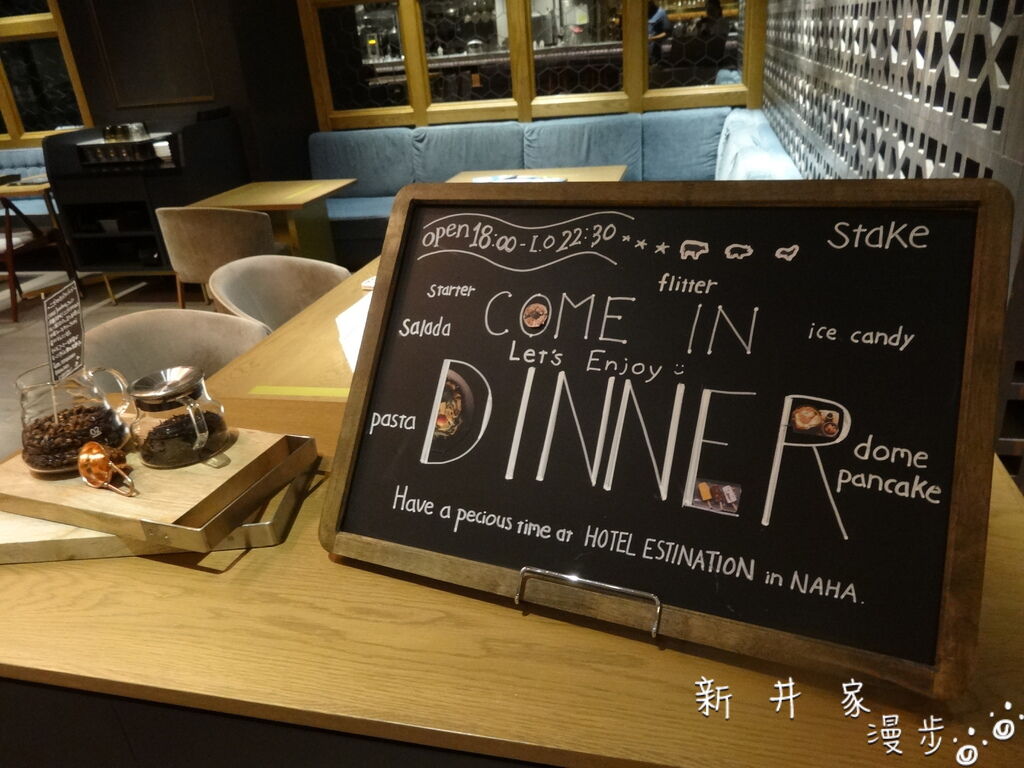 open 18:00 - L.O 22:30 ***
Stake
Starter
flitter
COME IN
Salada
ice candy
Let's Enjoy
pasta
DINNER
dome
pancake
Have a pecious time at HOTEL ESTINATION in NAHA.
新井家
漫步